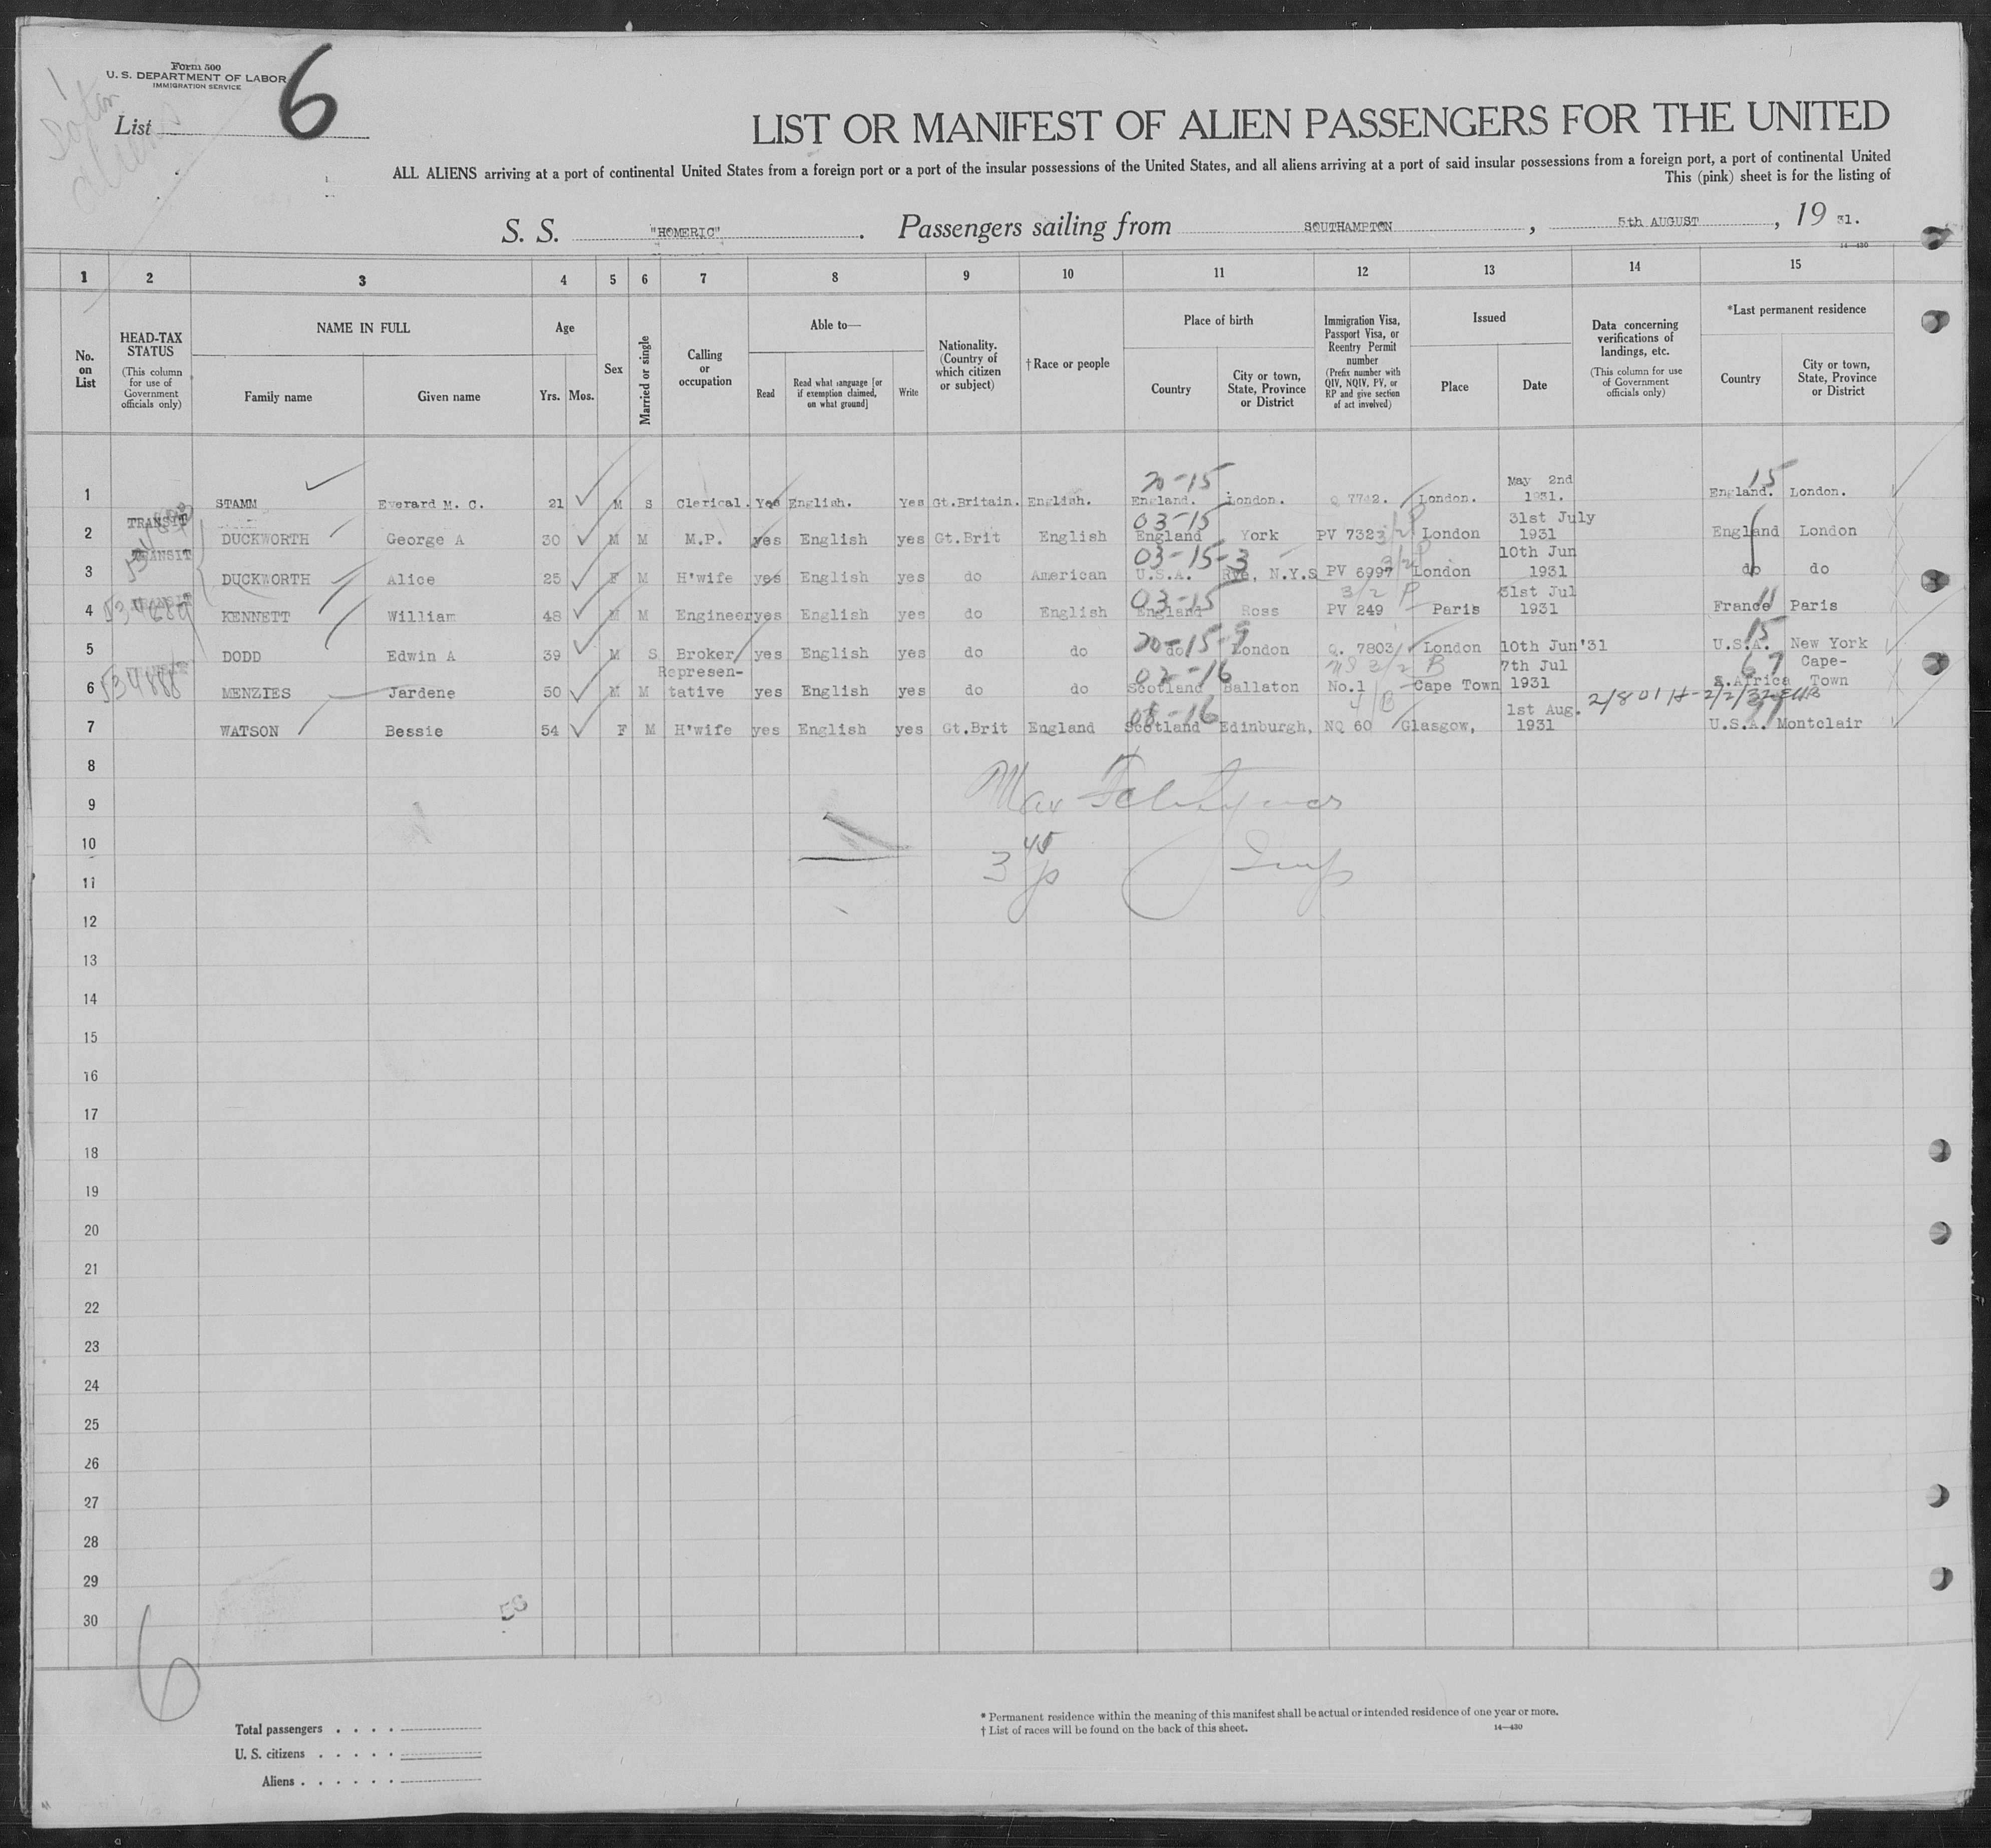 Form 500
U. S. DEPARTMENT OF LABOR
IMMIGRATION SERVICE
List 6
LIST OR MANIFEST OF ALIEN PASSENGERS FOR THE UNITED
ALL ALIENS arriving at a port of continental United States from a foreign port or a port of the insular possessions of the United States, and all aliens arriving at a port of said insular possessions from a foreign port, a port of continental United
This (pink) sheet is for the listing of
S. S. "HOMERIC". Passengers sailing from SOUTHAMPTON, 5th AUGUST, 19 31.
14—430
1 2 3 4 5 6 7 8 9 10 11 12 13 14 15
No. on List
HEAD-TAX STATUS (This column for use of Government officials only)
NAME IN FULL
Family name
Given name
Age
Yrs. Mos.
Sex
Married or single
Calling or occupation
Able to—
Read
Read what language [or if exemption claimed, on what ground]
Write
Nationality. (Country of which citizen or subject)
† Race or people
Place of birth
Country
City or town, State, Province or District
Immigration Visa, Passport Visa, or Reentry Permit number (Prefix number with QIV, NQIV, PV, or RP and give section of act involved)
Issued
Place
Date
Data concerning verifications of landings, etc. (This column for use of Government officials only)
*Last permanent residence
Country
City or town, State, Province or District
20-15 15
1 STAMM Everard M. C. 21 M S Clerical. Yes English. Yes Gt.Britain. English. England. London. Q 7742. London. May 2nd 1931. England. London.
03-15
2 TRANSIT DUCKWORTH George A 30 M M M.P. yes English yes Gt.Brit English England York PV 7323 London 31st July 1931 England London
03-15-3
3 TRANSIT DUCKWORTH Alice 25 F M H'wife yes English yes do American U.S.A. Rye, N.Y.S PV 6997 London 10th Jun 1931 do do
03-15 3/2 P
4 KENNETT William 48 M M Engineer yes English yes do English England Ross PV 249 Paris 31st Jul 1931 France Paris
20-15-9 15
5 DODD Edwin A 39 M S Broker yes English yes do do do London Q. 7803 London 10th Jun'31 U.S.A. New York
02-16 3/2 B 67
6 534888 MENZIES Jardene 50 M M Represen-tative yes English yes do do Scotland Ballaton No.1 Cape Town 7th Jul 1931 S.Africa Cape-Town
08-16 4/B
7 WATSON Bessie 54 F M H'wife yes English yes Gt.Brit England Scotland Edinburgh, NQ 60 Glasgow, 1st Aug. 1931 U.S.A. Montclair
8
9 Max
10
11 3 45 p Insp
12
13
14
15
16
17
18
19
20
21
22
23
24
25
26
27
28
29
30
58
6
Total passengers . . . .
U. S. citizens . . . . .
Aliens . . . . . .
* Permanent residence within the meaning of this manifest shall be actual or intended residence of one year or more.
† List of races will be found on the back of this sheet. 14—430